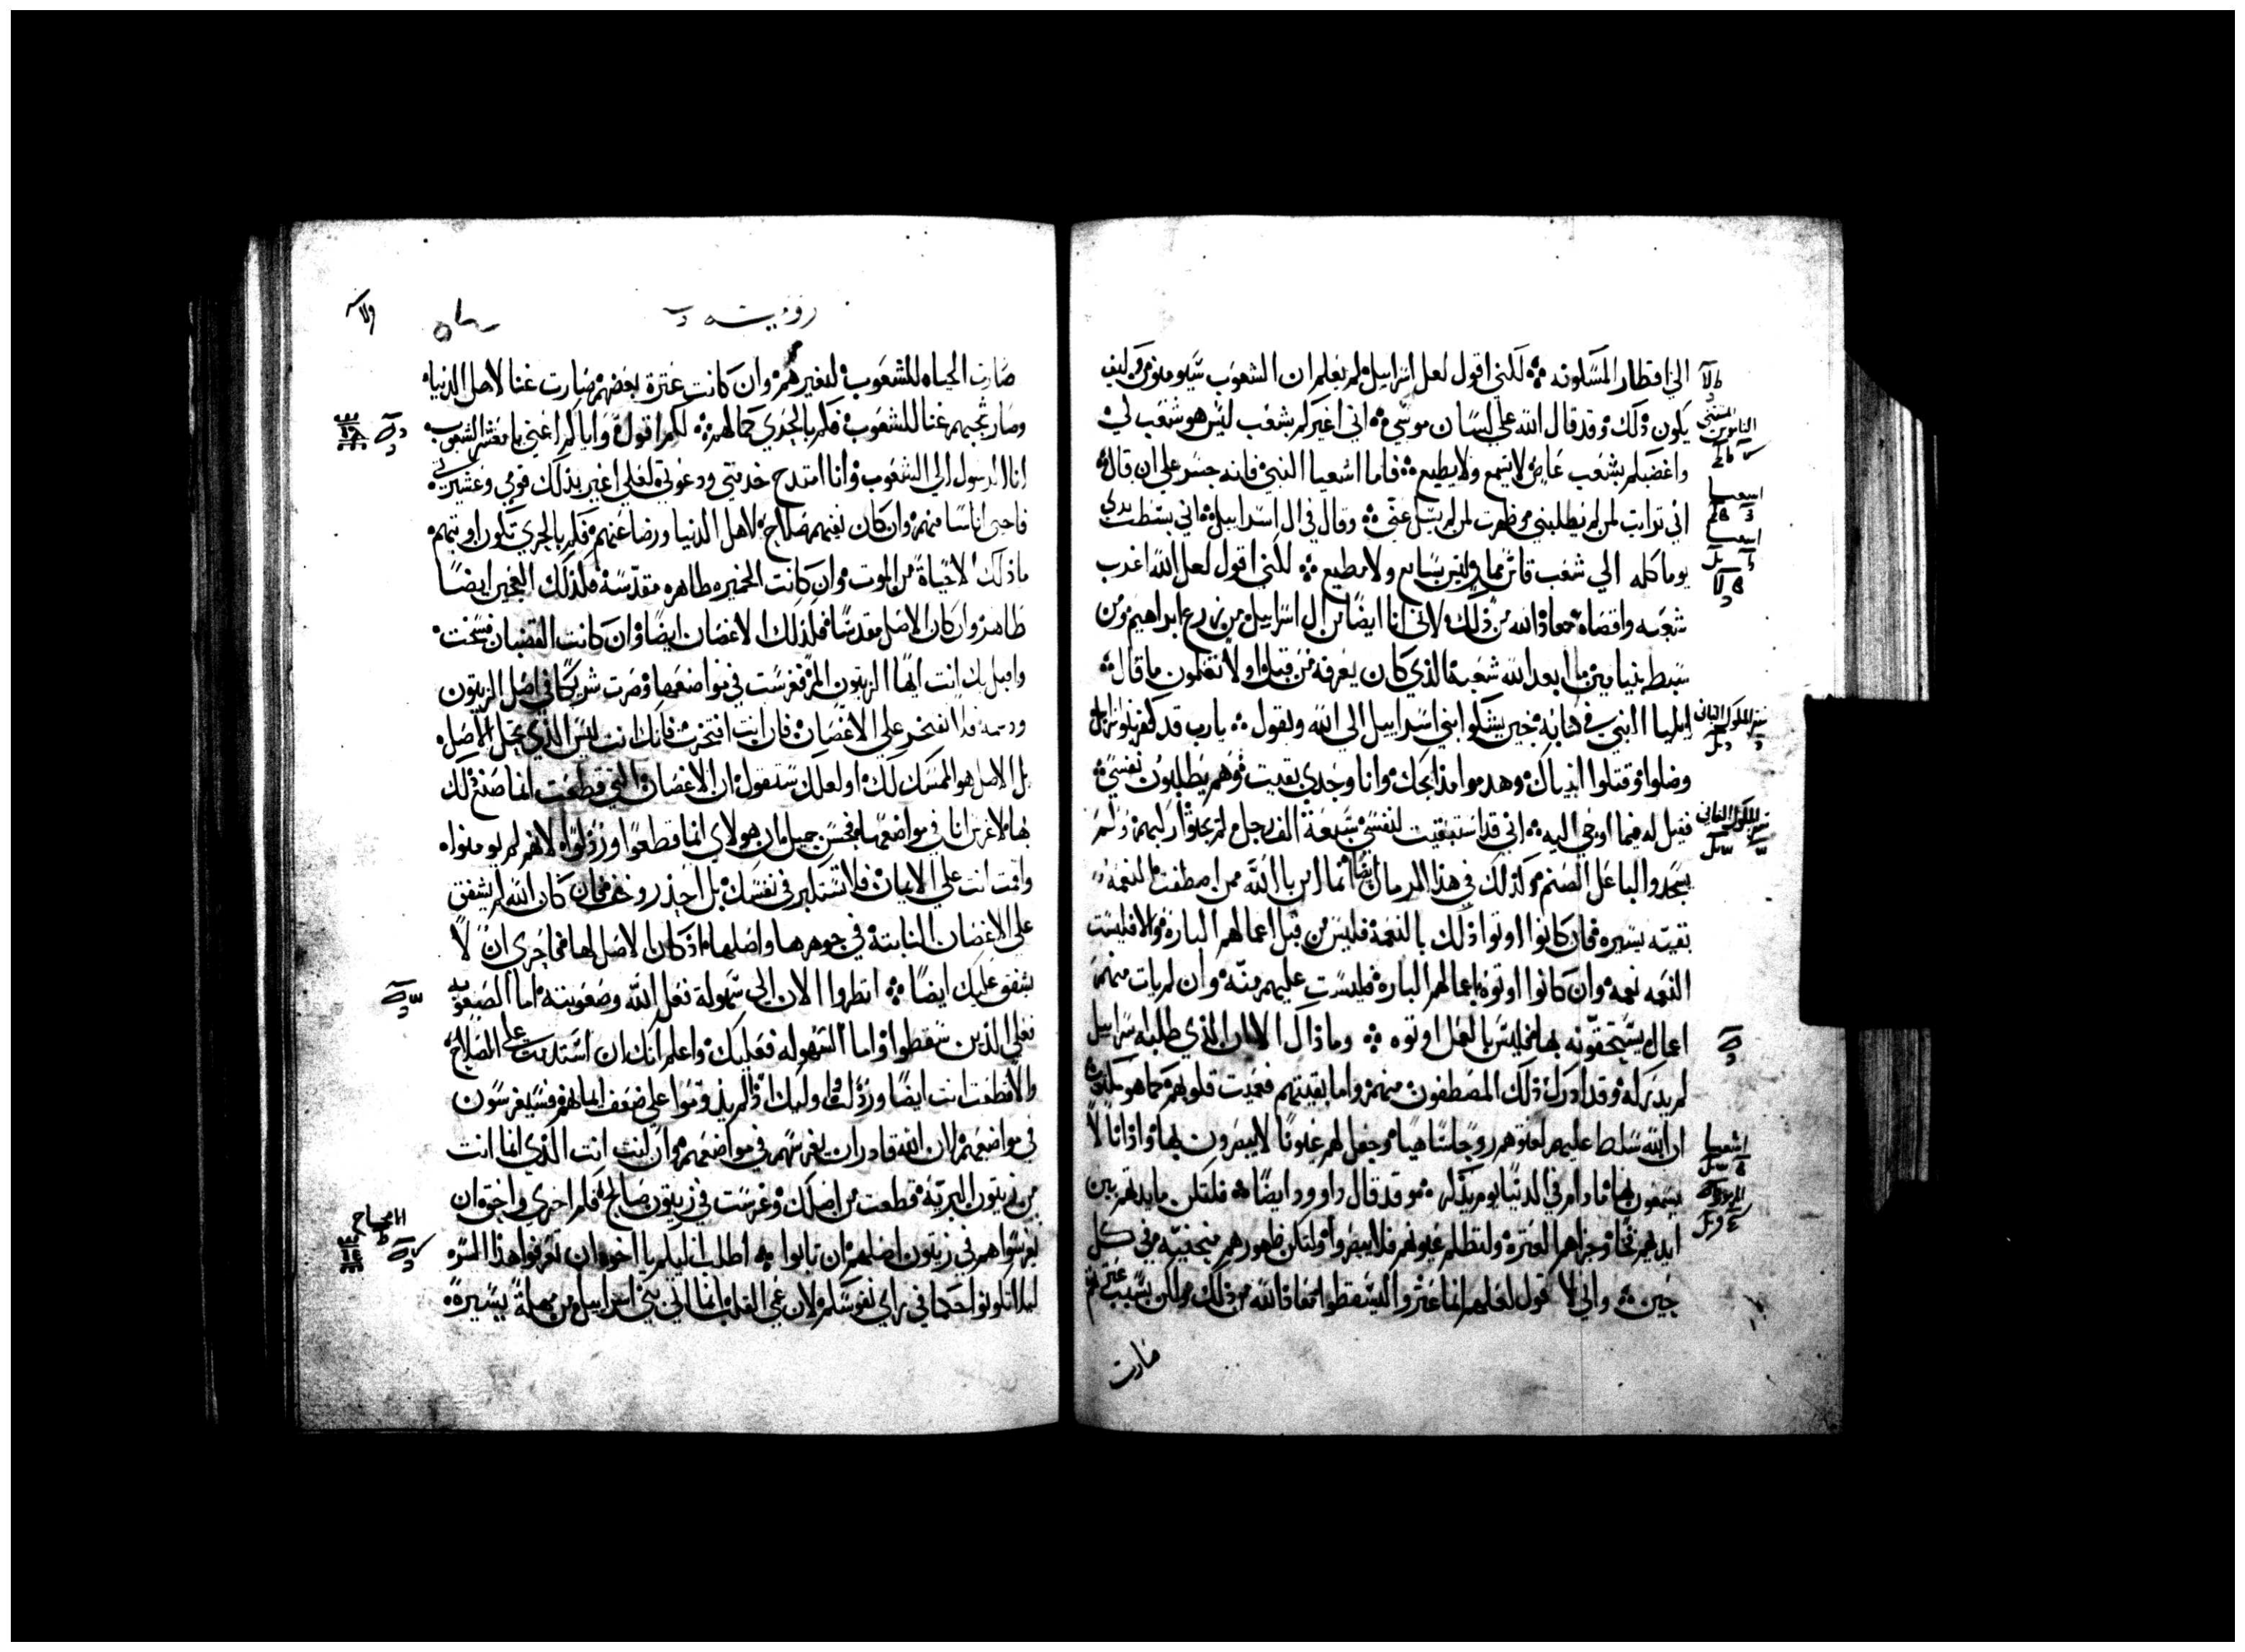 الي اقطار المسكونه لكني اقول لعل اسراييل لم يعلم ان الشعوب سيومنون وكيف
يكون ذلك وقد قال الله علي لسان موسي اني اغيركم بشعب ليس هو شعب لي
واغضبكم بشعب عاص لا يسمع ولا يطيع فاما اشعيا النبي فانه جسر علي ان قال
اني ترايت لمن لم يطلبني وظهرت لمن لم يسل عني وقال في ال اسراييل اني بسطت يدي
يوما كله الي شعب ولا مطيع لكني اقول لعل الله اغرب
شعبه واقصاه معاذ الله من ذلك لاني انا ايضا من ال اسراييل من زرع ابراهيم ومن
سبط بنيامين ما ابعد الله شعبه الذي كان يعرفه من قبل اولا تعلمون ما قال
ايليا النبي في كتابه حين يشكوا بني اسراييل الي الله ويقول يارب قد
وقتلوا انبياك وهدموا مذابحك وانا وحدي بقيت وهم يطلبون نفسي
فقيل له فيما اوحي اليه اني قد استبقيت لنفسي سبعة الف رجل لم يجثوا ركبهم ولم
يسجدوا لباعل الصنم وكذلك في هذا الزمان ايضا من اصطفت النعمه
بقيه يسيره فان كانوا اوتوا ذلك بالنعمة فليس من قبل اعمالهم الباره والا فليست
النعمه نعمه وان كانوا اوتوه باعمالهم الباره فليست عليهم منه وان لم يات منهم
اعمال يستحقونه بها فليس بالعمل اوتوه وماذاك الان الذي طلبه اسراييل
لم يدركه وقد ادرك ذلك المصطفون منهم واما بقيتهم فعميت قلوبهم كما هو مكتوب
ان الله سلط عليهم روحا ساهيا وجعل لهم عيونا لا يبصرون بها واذانا لا
يسمعون بها ما دام في الدنيا يوم يذكر وقد قال داوود ايضا فلتكن مايدتهم بين
ايديهم فخا وجزاهم العثرة ولتظلم عيونهم فلا يبصروا ولتكن ظهورهم منحنيه في كل
حين واني لا اقول لعلهم انما عثروا ليسقطوا معاذ الله من ذلك ولكن بسبب عثرتهم
صارت
صارت الحياه للشعوب لتغيرهم وان كانت عثرة بعضهم صارت غنا لاهل الدنيا
غنا للشعوب فكم بالحري كمالهم لكم اقول واياكم اعني يا معشر الشعوب
انا الرسول الي الشعوب وانا امتدح خدمتي ودعوتي لعلي اغير بذلك قومي وعشيرتي
فاحيي اناسا منهم وان كان نفيهم صلاح لاهل الدنيا ورضا عنهم فكم بالحري تكون اوبتهم
ما ذلك الا حياة من الموت وان كانت الخميره طاهره مقدسة فكذلك العجين ايضا
طاهر وان كان الاصل مقدسا فكذلك الاغصان ايضا وان كانت القضبان فسخت
وانت ايها الزيتون المر فغرست في مواضعها وصرت شريكا في اصل الزيتون
فلا تفتخر علي الاغصان فان انت افتخرت فانك انت ليس الذي تحمل الاصل
بل الاصل هو الممسك لك او لعلك ستقول ان الاغصان التي قطعت انما صنع ذلك
بها لاغرس انا في مواضعها فحسن جميل فان هولاي انما قطعوا ورذلوا لانهم لم يومنوا
واقمت انت علي الايمان فلا تستكبر في نفسك بل احذر وخف فان كان الله لم يشفق
علي الاغصان النابتة في جوهرها واصلها اذ كان الاصل لها فما احري ان لا
يشفق عليك ايضا انظروا الان الي سهولة فعل الله وصعوبته اما الصعوبه
فعلي الذين سقطوا واما السهوله فعليك واعلم انك ان استدمت علي الصلاح
والا قطعت انت ايضا ورذلت واوليك ان لم يدوموا علي ضعف ايمانهم فسيغرسون
في مواضعهم لان الله قادر ان يغرسهم في مواضعهم وان كنت انت الذي انما انت
من زيتون البرية قطعت من اصلك وغرست في زيتون صالح فكم احري واحق ان
يغرسوا هم في زيتون اصلهم ان تابوا اطلب اليكم يا اخوه ان تعرفوا هذا السره
ليلا تكونوا حكما في راي نفوسكم لان عمي القلب انما الي بني اسراييل من مهلة يسيرة